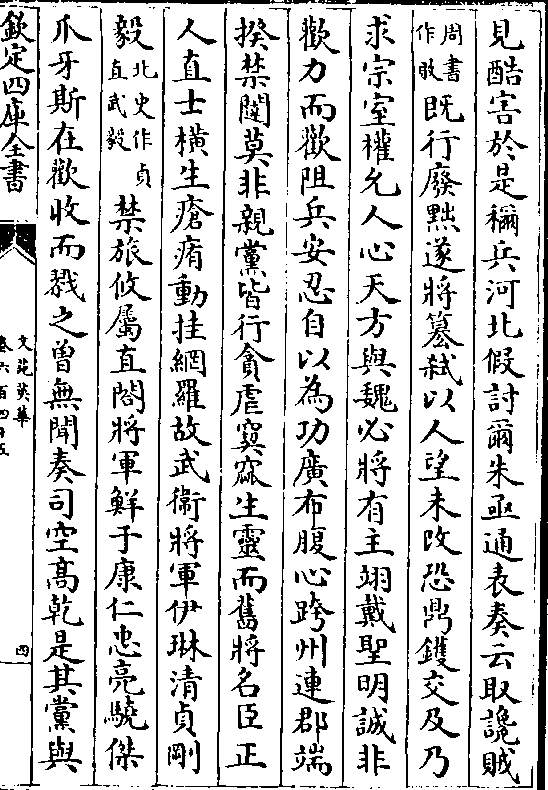 見酷害於是稱兵河北假討爾朱亟通表奏云取讒賊
周書作啟既行廢黜遂將簒弑以人望未改恐鼎鑊交及乃
求宗室權允人心天方與魏必將有主翊戴聖明誠非
歡力而歡阻兵安忍自以為功廣布腹心跨州連郡端
揆禁闥莫非親黨皆行貪虐窫窳生靈而舊將名臣正
人直士橫生瘡痏動挂網羅故武衛將軍伊琳清貞剛
毅北史作貞直武毅禁旅攸屬直閤將軍鮮于康仁忠亮驍傑
爪牙斯在歡收而戮之曽無聞奏司空髙乾是其黨與
欽定四庫全書
文苑英華
卷六百四十五
四